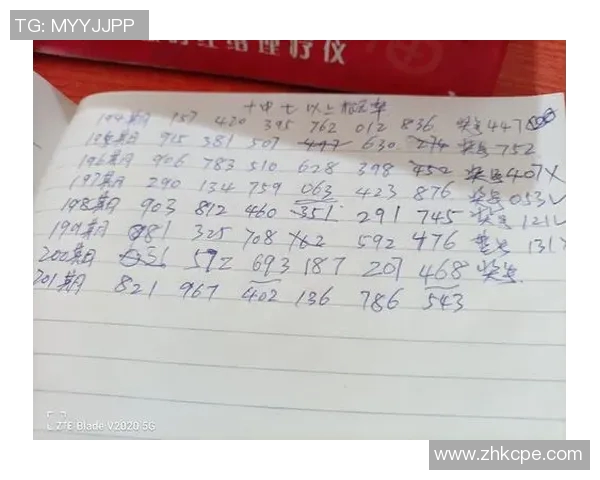 TG: MYYJJPP
理疗仪
十中七以上概率
194期 157 420 395 762 012 836 奖号447
195期 915 381 507 497 630 274 奖号752
196期 906 783 510 628 398 452 奖号407X
197期 290 134 759 063 423 876 奖号053√
198期 903 812 460 351 291 745 奖号121√
199期 981 325 708 162 592 476 奖号131
200期 592 693 187 207 468 奖号
201期 821 967 402 136 786 543
ZTE Blade V2020 5G
www.zhkcpe.com